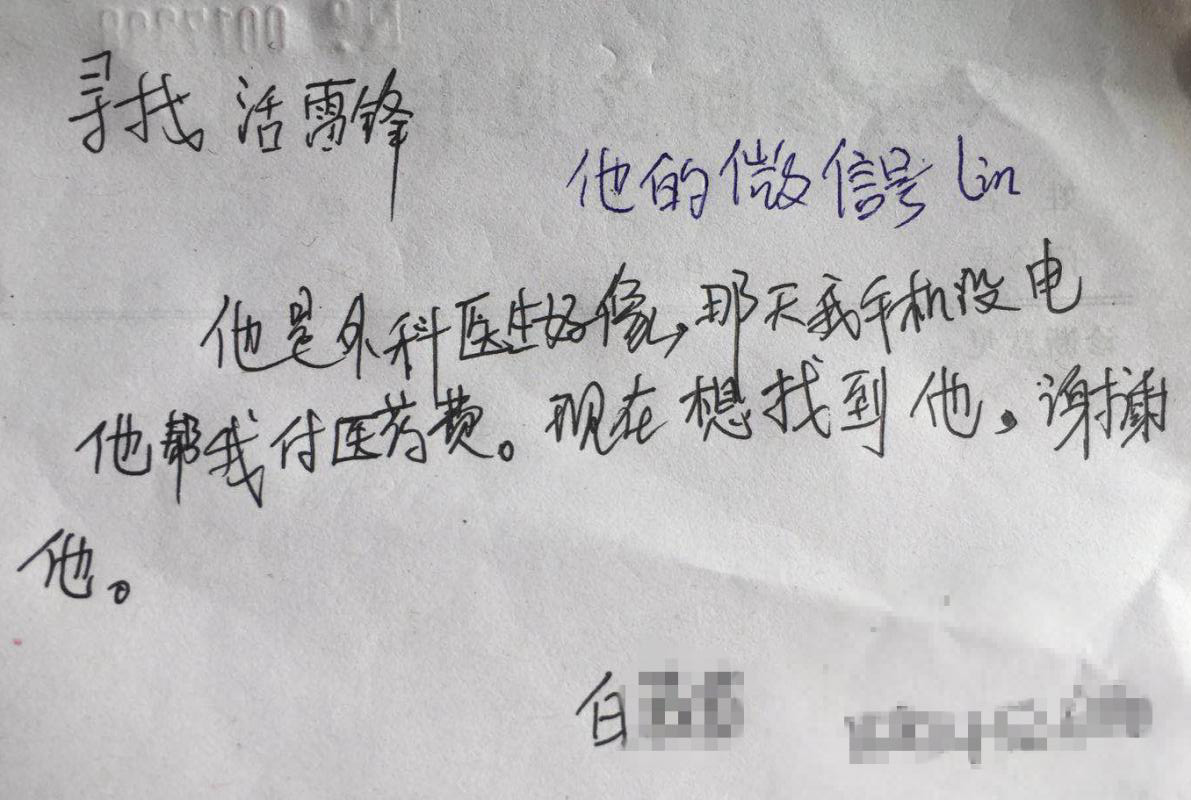 寻找活雷锋
他的微信号 lin
他是外科医生好像,那天我手机没电
他帮我付医药费。现在想找到他。谢谢
他。
白